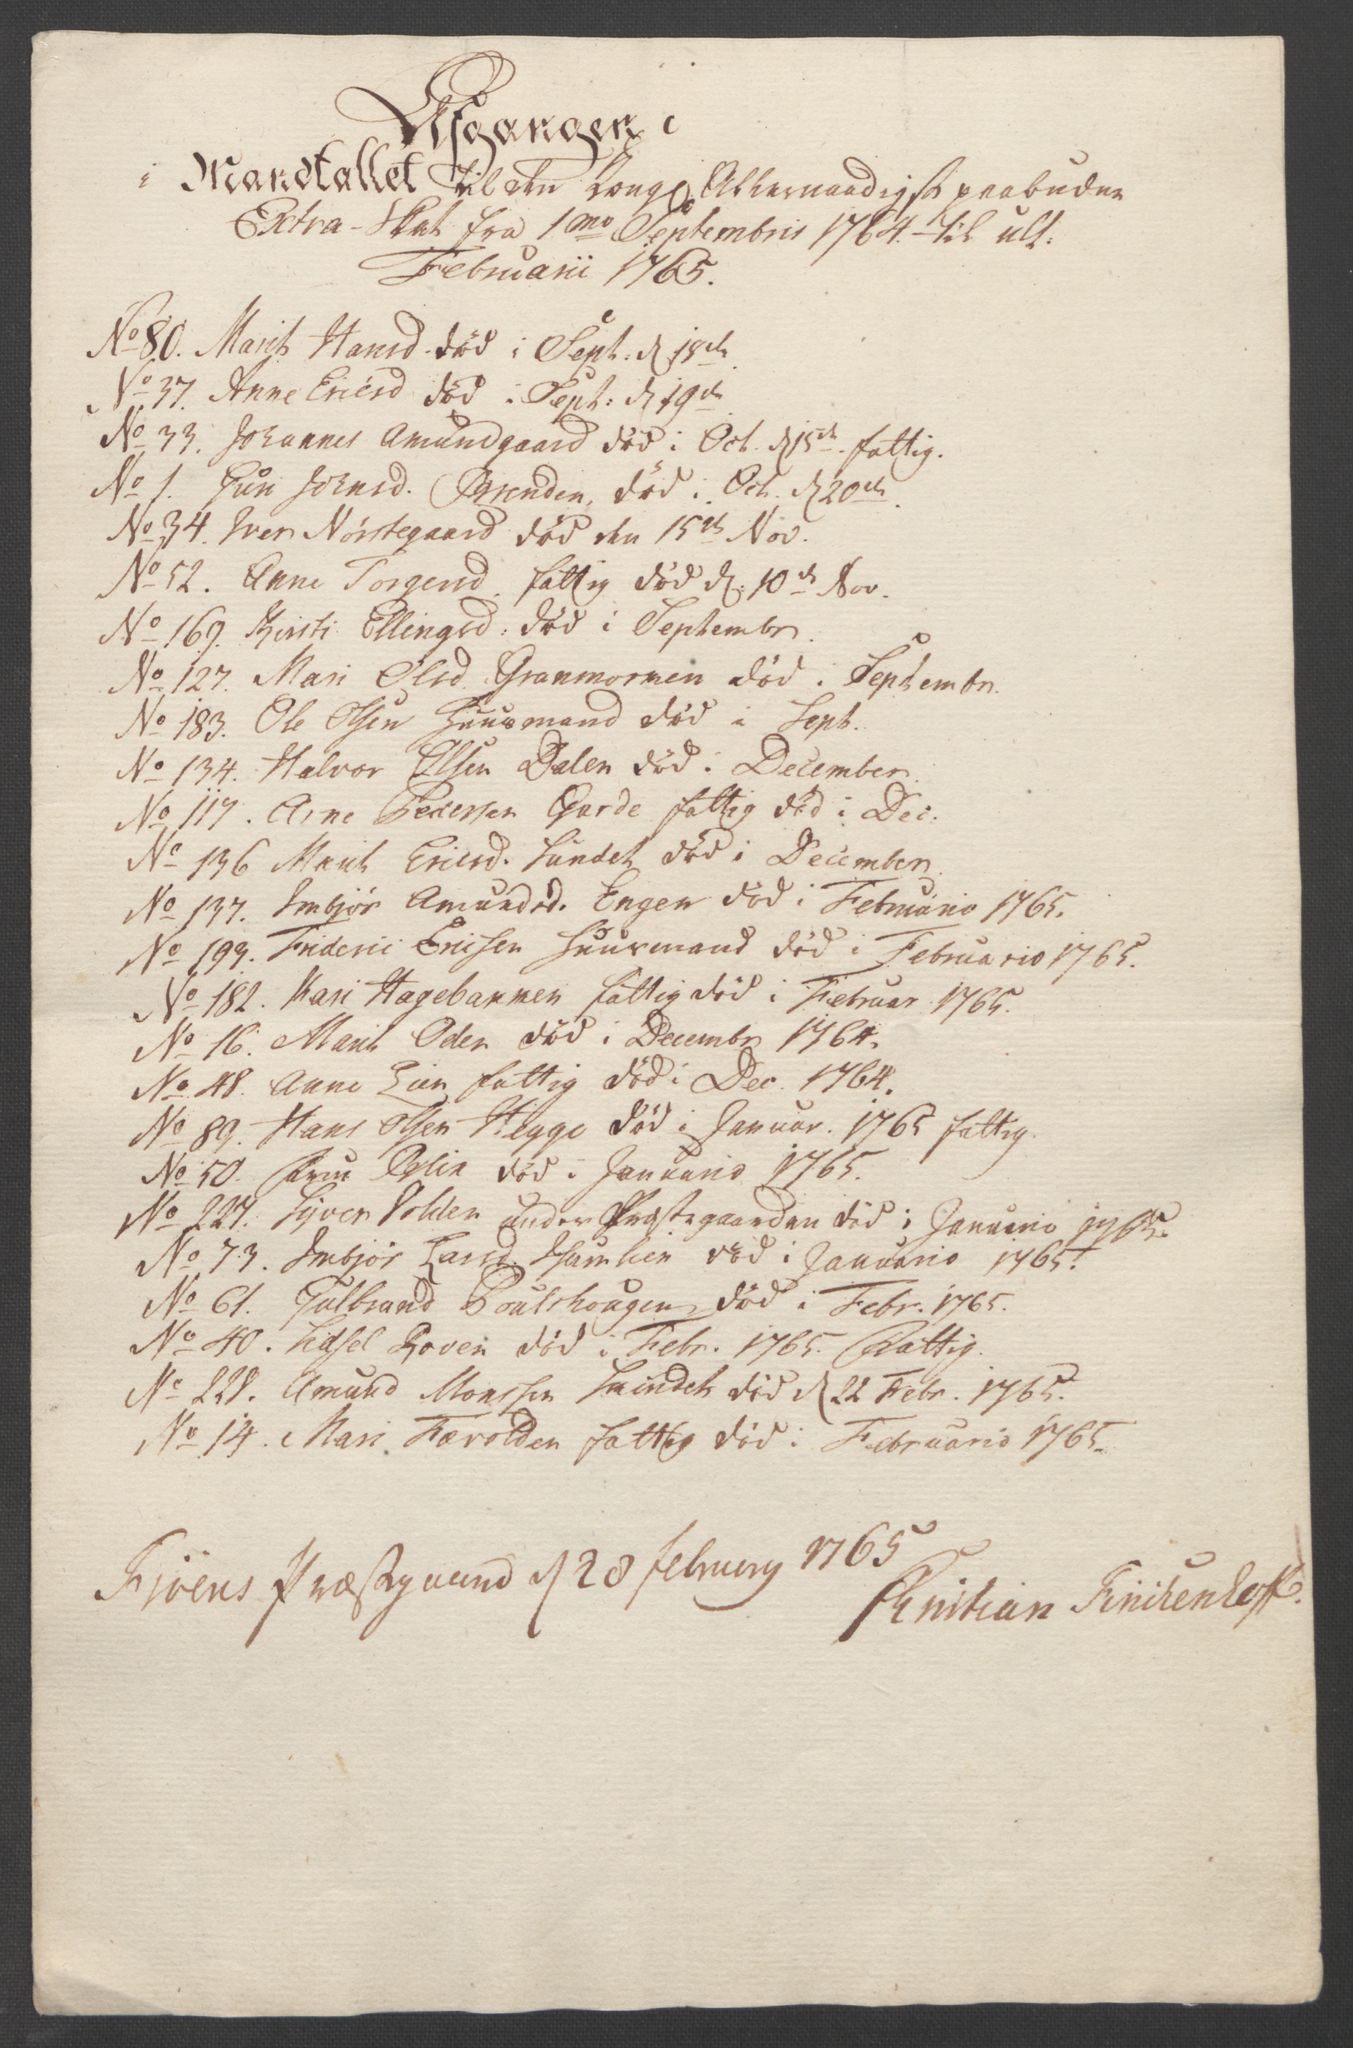 Afgangen i
i Mandtallet til den Kongl: Allernaadigst paabudne
Extra-Skat fra 1mo Septembris 1764. til ult:
Februarii 1765.
No 80. Marit Hansd. död i Sept: d 18de
No 37. Anne Ericsd död i Sept: d 19de
No 33. Johannes Amundgaard död i Oct. d 15de fattig.
No 1. Guri Johnsd. Brenden, död i Oct. d 20de.
No 34. Iver Nörstegaard död den 15de Nov.
No 52. Anne Torgersd. fattig död d. 10de Nov.
No 169. Kirsti Ellingsd: död i Septembr.
No 127. Mari Olsd. Granmornen död i Septembr.
No 183. Ole Olsen Huusmand död i Sept.
No 134. Halvor Olsen Dalen död i December.
No 117. Arne Pedersen Garde fattig död i Dec:
No 136 Marit Ericsd. Sundet död i December.
No 137. Imbjör Amundsd. Engen död i Februario 1765.
No 193. Frideric Ericsen Huusmand död i Februario 1765.
No 182. Kari Hagebannen fattig död i Februar. 1765.
No 16. Marit Oden död i Decembr 1764.
No 48. Anne Lien fattig död i Dec. 1764.
No 89. Hans Olsen Hegge död i Januar. 1765 fattig.
No 50. död i Januario 1765.
No 227. Siver Volden under Præstegaarden död i Januario 1765.
No 73. Imbjör Larsd. död i Januario 1765.
No 61. Gulbrand Poulshougen död i Febr. 1765.
No 40. Sidsel Hoven död i Febr. 1765. Fattig.
No 228. Amund Monssen Sundet död d 22 Febr. 1765.
No 14. Mari Fævolden fattig död i Februario 1765.
Fröens Præstegaard d 28 februarij 1765
Christian Finckenhoff.